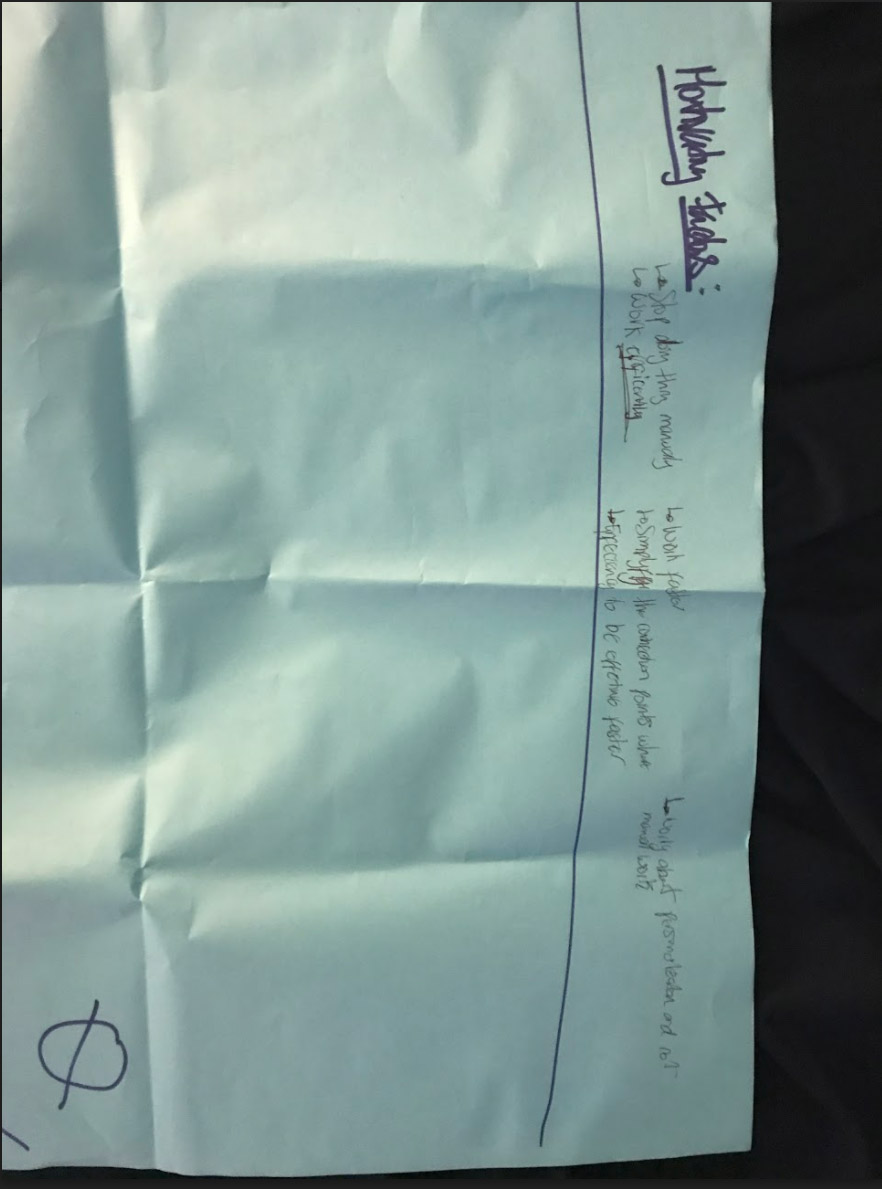 Motivating factors:
↳ Stop doing thing manually
↳ Work efficiently
↳ Work faster
↳ Simplify the connection points where
↳ Expecting to be effective faster
↳ Worry about personalization and not
manual work